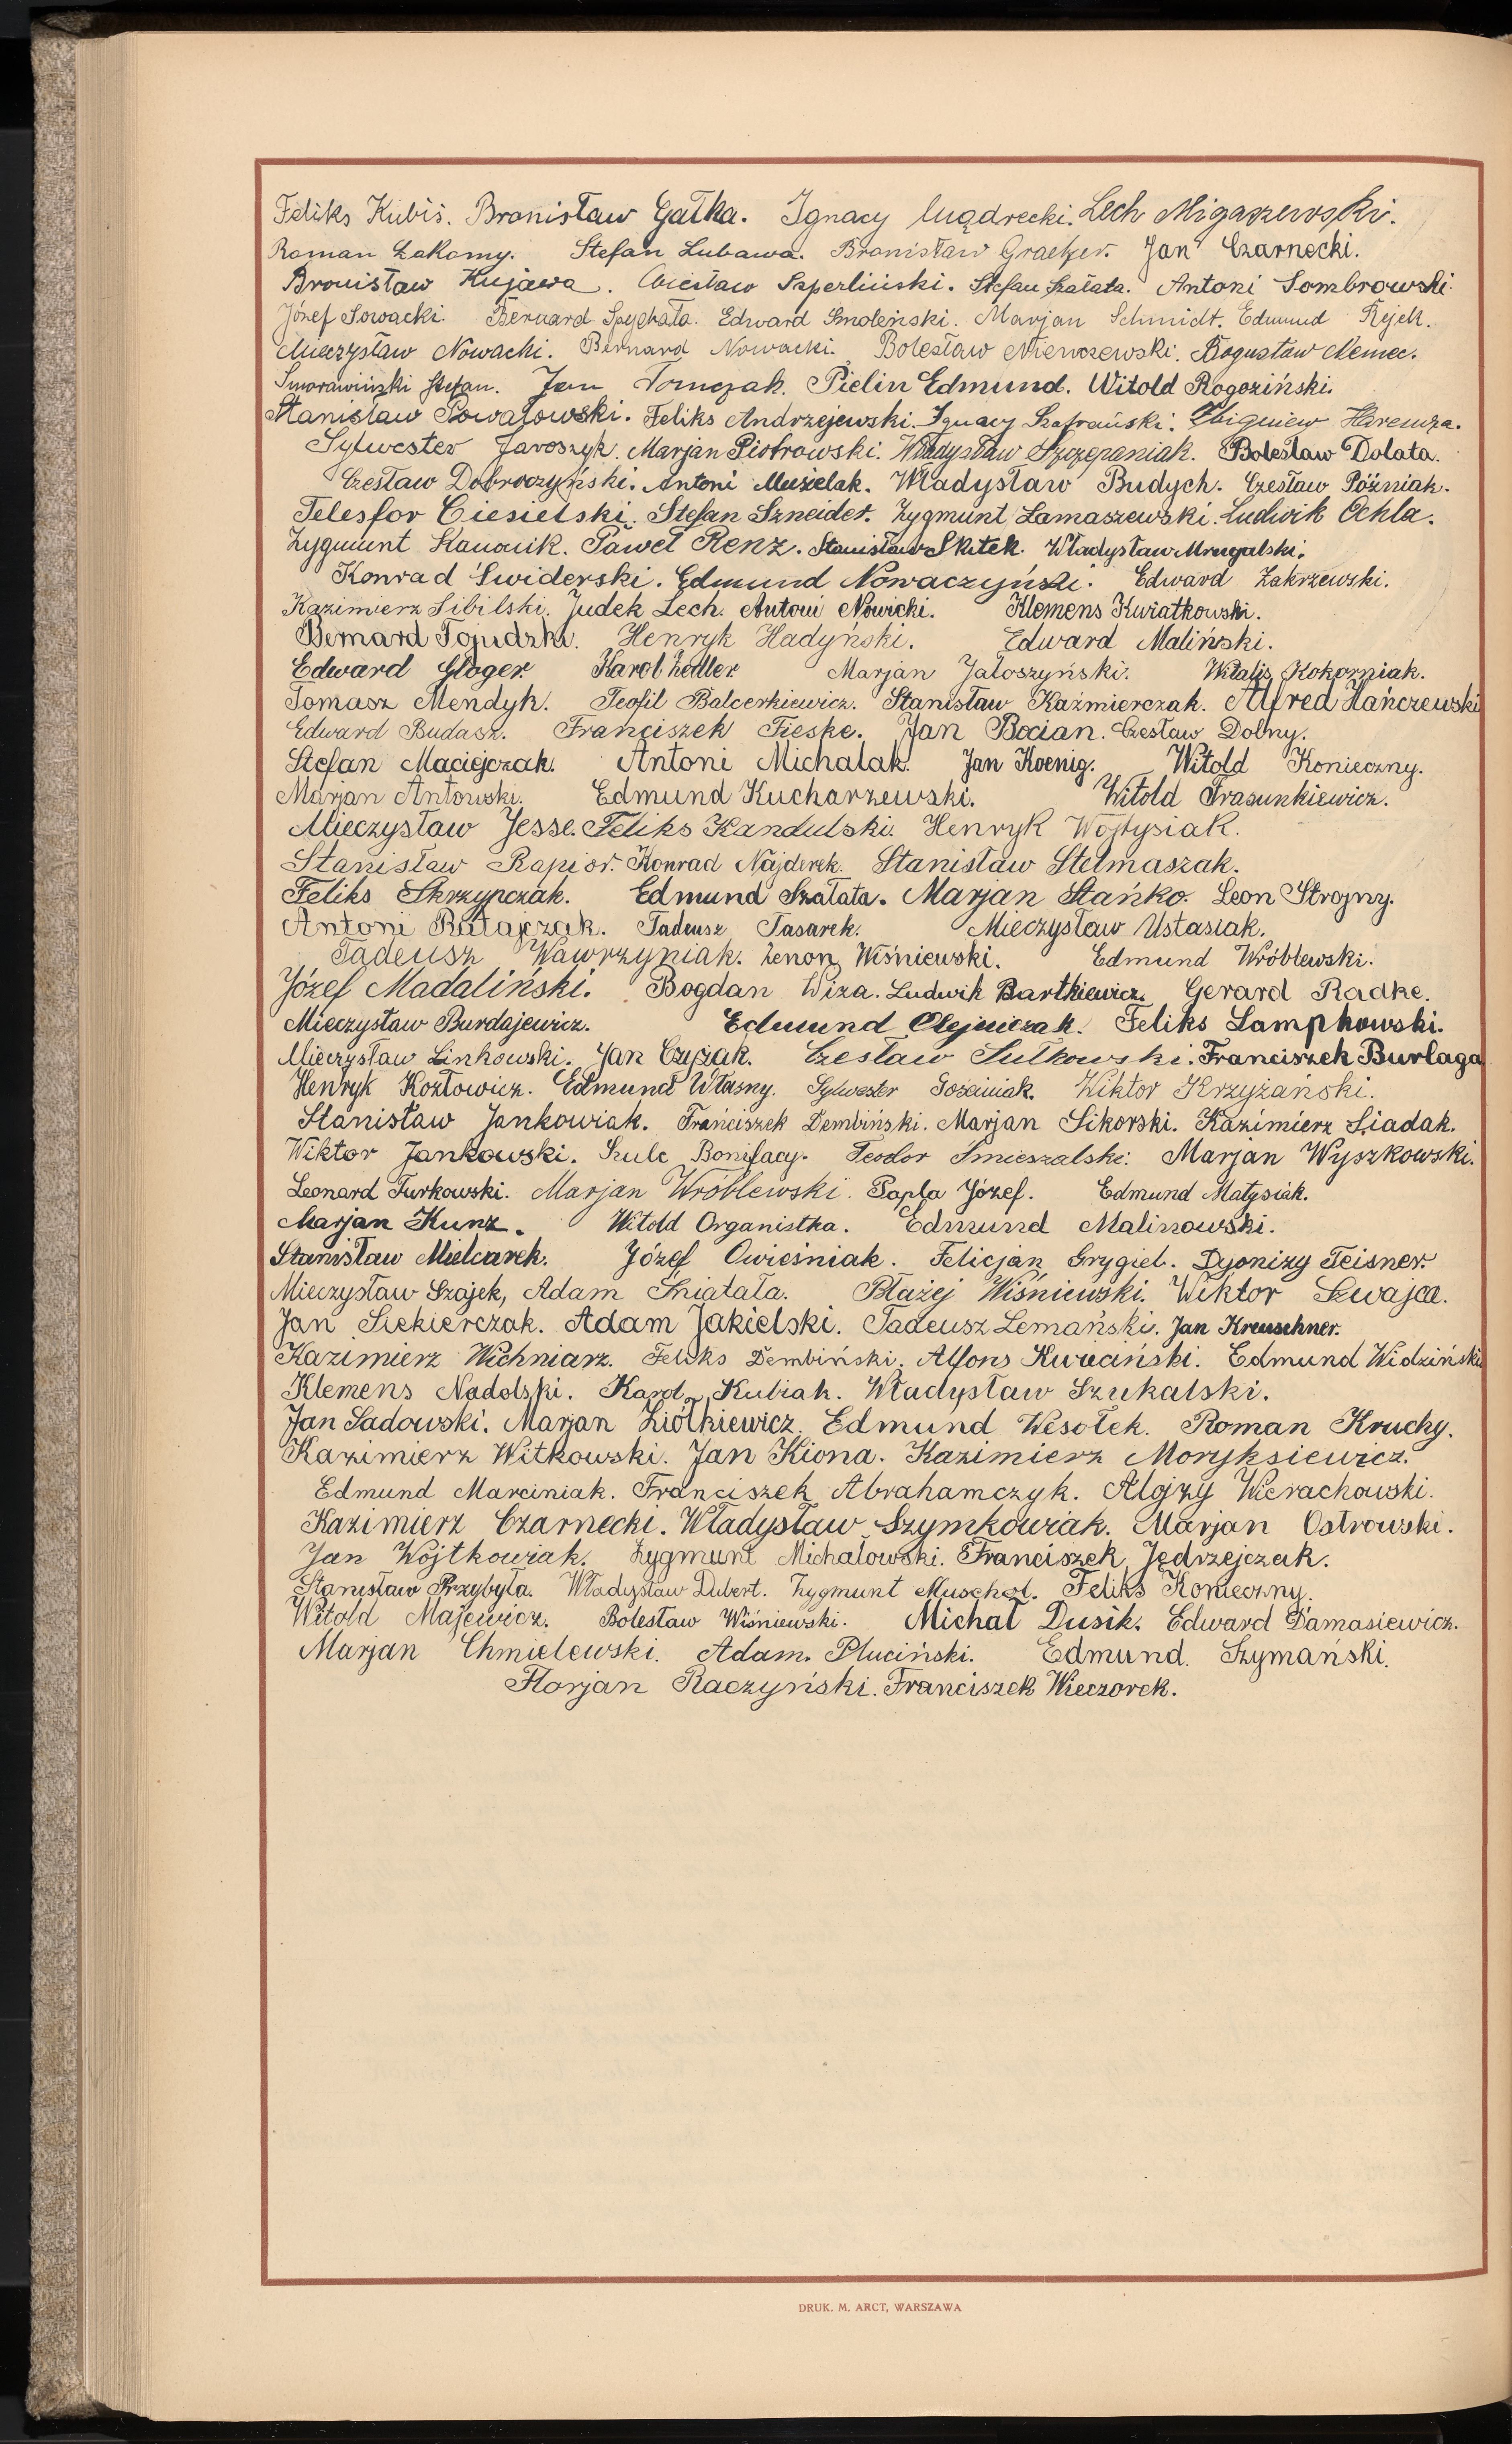 Feliks Kubiś. Bronisław Gałka. Ignacy Mądrecki. Lech Migaszewski.
Roman Łakomy. Stefan Lubawa. Bronisław Graetzer. Jan Czarnecki.
Bronisław Kujawa. Wiesław Szperliński. Stefan Szałata. Antoni Sombrowski.
Józef Sowacki. Bernard Spychała. Edward Smoleński. Marjan Schmidt. Edmund Rejek.
Mieczysław Nowacki. Bernard Nowacki. Bolesław Mierwczewski. Bogusław Niemec.
Smorawiński Stefan. Jan Tomczak. Pielin Edmund. Witold Rogoziński.
Stanisław Powałowski. Feliks Andrzejewski. Ignacy Szafrański. Zbigniew Haremza.
Sylwester Jaroszyk. Marjan Piotrowski. Władysław Szczepaniak. Bolesław Dolata.
Czesław Dobroczyński. Antoni Musielak. Władysław Budych. Czesław Późniak.
Telesfor Ciesielski. Stefan Szneider. Zygmunt Łamaszewski. Ludwik Ochla.
Zygmunt Kanonik. Paweł Renz. Stanisław Skitek. Władysław Mrugalski.
Konrad Świderski. Edmund Nowaczyński. Edward Zakrzewski.
Kazimierz Sibilski. Judek Lech. Antoni Nowicki. Klemens Kwiatkowski.
Bernard Henryk Hadyński. Edward Maliński.
Edward Gloger. Karol Zedler. Marjan Jałoszyński. Witalis Kokorniak.
Tomasz Mendyk. Teofil Balcerkiewicz. Stanisław Kaźmierczak. Alfred Hańczewski
Edward Budasz. Franciszek Fieske. Jan Bocian. Czesław Dolny.
Stefan Maciejczak. Antoni Michalak. Jan Koenig. Witold Konieczny.
Marjan Antowski. Edmund Kucharzewski. Witold Trasunkiewicz.
Mieczysław Jesse. Feliks Kandulski. Henryk Wojtysiak.
Stanisław Rapior. Konrad Najderek. Stanisław Stelmaszak.
Feliks Skrzypczak. Edmund Szałata. Marjan Stańko. Leon Strojny.
Antoni Ratajczak. Tadeusz Tasarek. Mieczysław Ustasiak.
Tadeusz Wawrzyniak. Zenon Wiśniewski. Edmund Wróblewski.
Józef Madaliński. Bogdan Wiza. Ludwik Bartkiewicz. Gerard Radke.
Mieczysław Burdajewicz. Edmund Olejniczak. Feliks Lampkowski.
Mieczysław Linkowski. Jan Czyżak. Czesław Sułkowski. Franciszek Burlaga
Henryk Kozłowicz. Edmund Własny. Sylwester Gościniak. Wiktor Krzyżański.
Stanisław Jankowiak. Franciszek Dembiński. Marjan Sikorski. Kazimierz Siadak.
Wiktor Jankowski. Szulc Bonifacy. Teodor Śmieszalski. Marjan Wyszkowski.
Leonard Turkowski. Marjan Wróblewski. Papla Józef. Edmund Matysiak.
Marjan Kunz. Witold Organistka. Edmund Malinowski.
Stanisław Mielcarek. Józef Owieśniak. Felicjan Grygiel. Dyonizy Teisner.
Mieczysław Szajek, Adam Śniatała. Błażej Wiśniewski. Wiktor Szwajca.
Jan Siekierczak. Adam Jakielski. Tadeusz Lemański. Jan Kreuschner.
Kazimierz Wichniarz. Feliks Dembiński. Alfons Kurcański. Edmund Widziński
Klemens Nadolski. Karol Kubiak. Władysław Szukalski.
Jan Sadowski. Marjan Ziółkiewicz. Edmund Wesołek. Roman Kruchy.
Kazimierz Witkowski. Jan Kiona. Kazimierz Moryksiewicz.
Edmund Marciniak. Franciszek Abrahamczyk. Alojzy Wierachowski.
Kazimierz Czarnecki. Władysław Szymkowiak. Marjan Ostrowski.
Jan Wojtkowiak. Zygmunt Michałowski. Franciszek Jędrzejczak.
Stanisław Przybyła. Władysław Dubert. Zygmunt Muschol. Feliks Konieczny.
Witold Majewicz. Bolesław Wiśniewski. Michał Dusik. Edward Damasiewicz.
Marjan Chmielewski. Adam. Pluciński. Edmund. Szymański.
Florjan Raczyński. Franciszek Wieczorek.
DRUK. M. ARCT, WARSZAWA